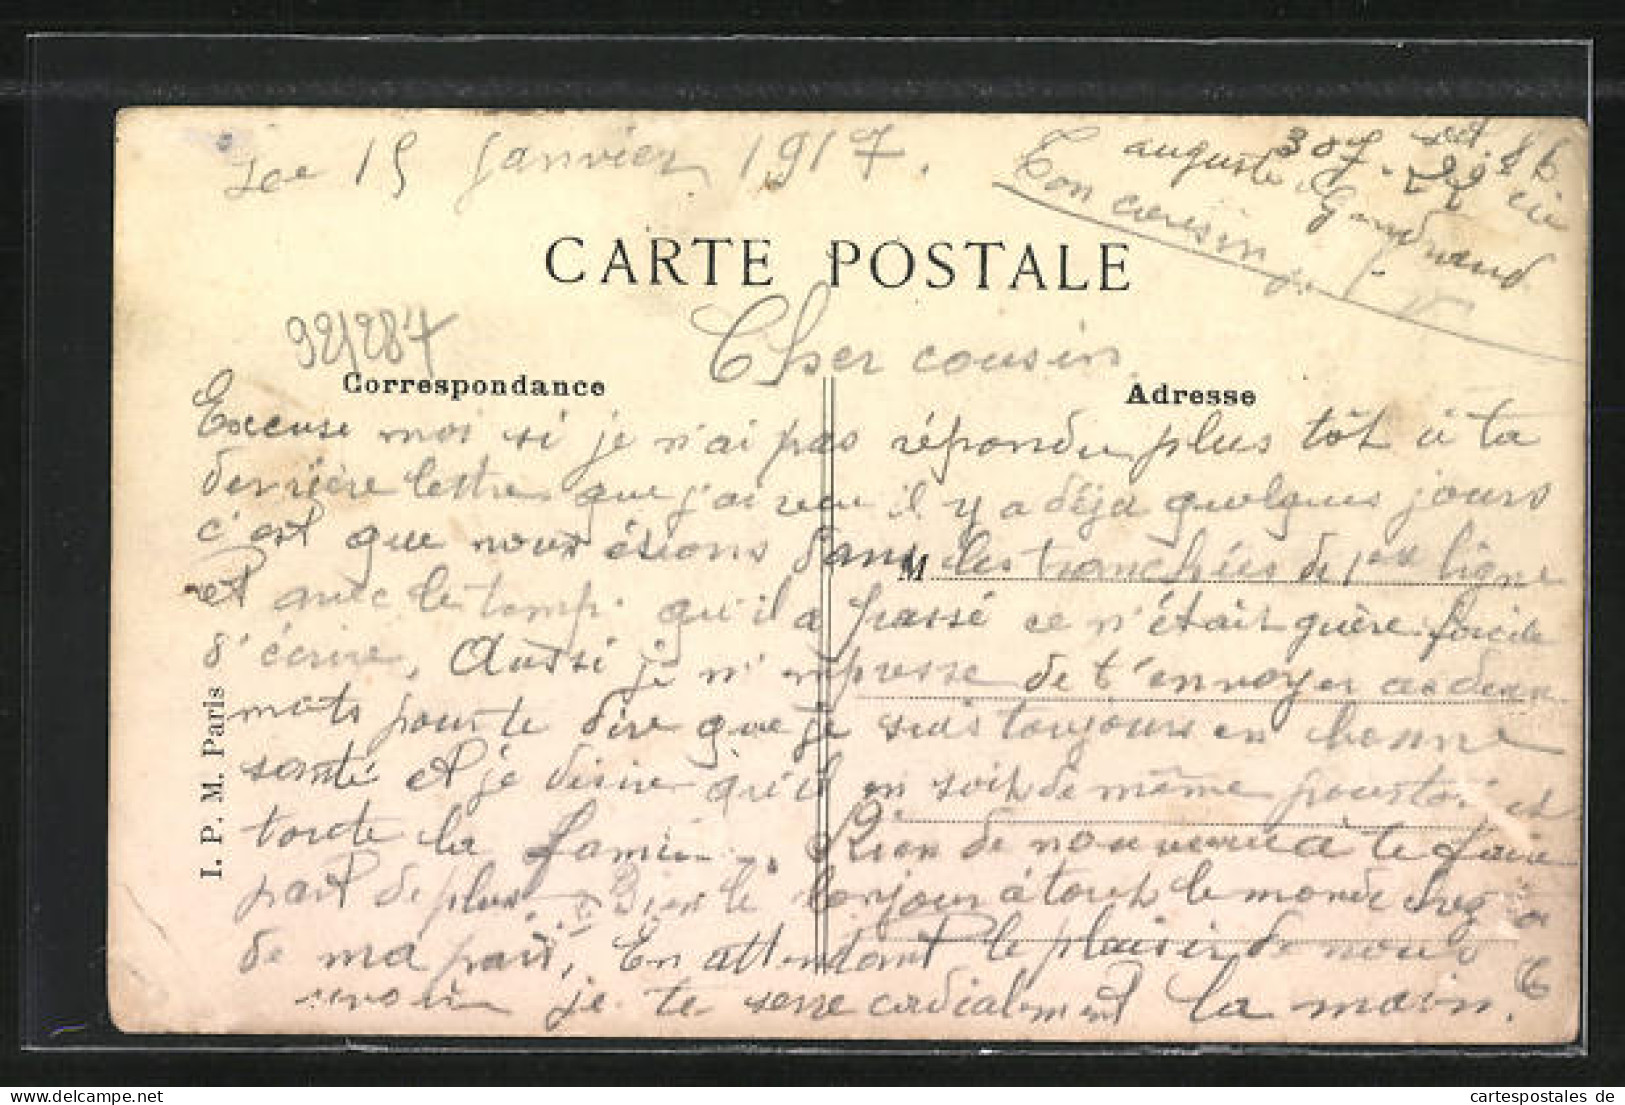 Le 15 Janvier 1917.
CARTE POSTALE
auguste
Ton cousin
92/287
Cher cousin
Correspondance
Adresse
Excuse moi si je n'ai pas répondu plus tôt à ta
derrière lettre que j'ai reçu il y a déja quelques jours
c'est que nous étions dans les tranchées de 1ere ligne
et avec le temps qu'il a passé ce n'était guère facile
d'écrire, Aussi je m'empresse de t'envoyer ces deux
mots pour te dire que je suis toujours en bonne
santé et je désire qu'il en soit de même pour toi et
toute la famille. Rien de nouveau à te faire
part de plus. Bien le bonjour à tout le monde chez
de ma part, En attendant le plaisir de nous
revoir je te serre cordialement la main.
I. P. M. Paris
cartespostales de